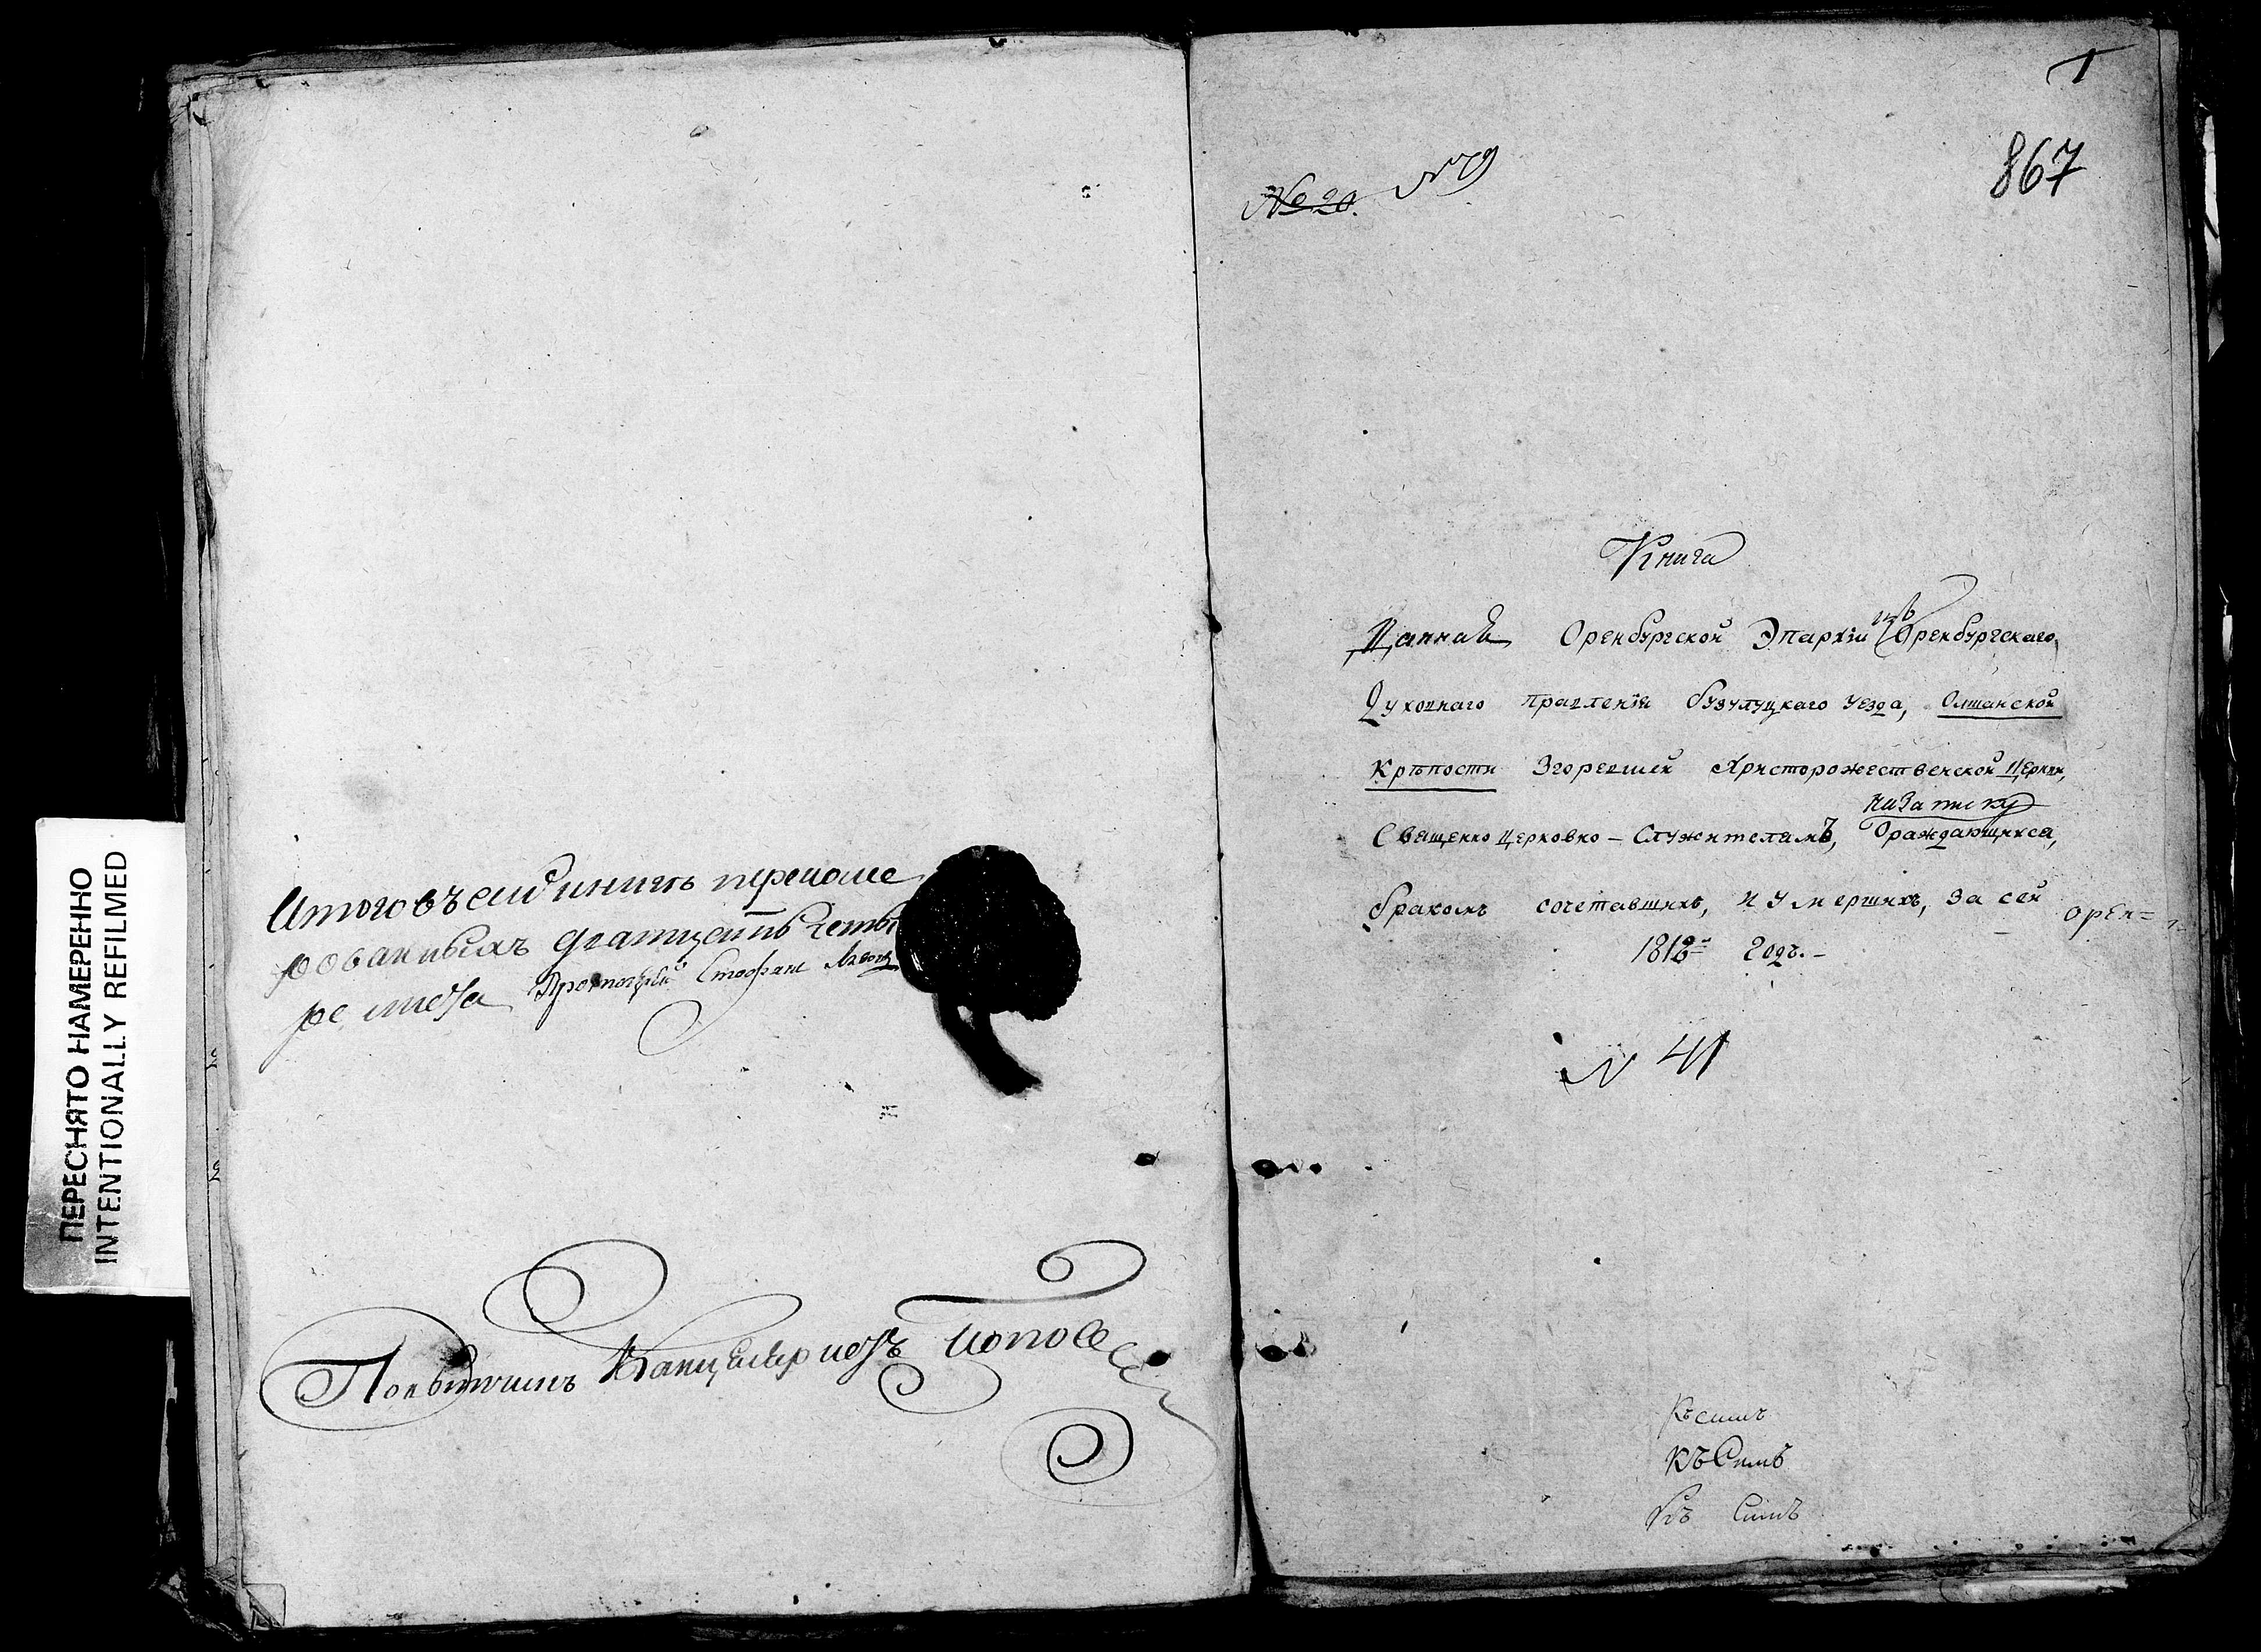 ПЕРЕСНЯТО НАМЕРЕННО
INTENTIONALLY REFILMED
Итого въ сей книгѣ перенуме
рованныхъ дватцать четы
ре листа Протоіерей Стефан
Повытчикъ Канцеляристъ Попов
1
867
№ 20. № 79
Книга
Данная Оренбургской Эпархіи изъ Оренбургскаго
Духовнаго правленія бузулуцкаго уезда, Олшанской
Крѣпости Згоревшей Христорожественской Церкви,
на записку
Священно Церковно - Служителамъ, Ораждающихса,
бракомъ сочетавшихъ, и умершихъ, за сей
орен=
1812й Годъ. -
N 41
Къ симъ
Къ Симъ
Къ Симъ